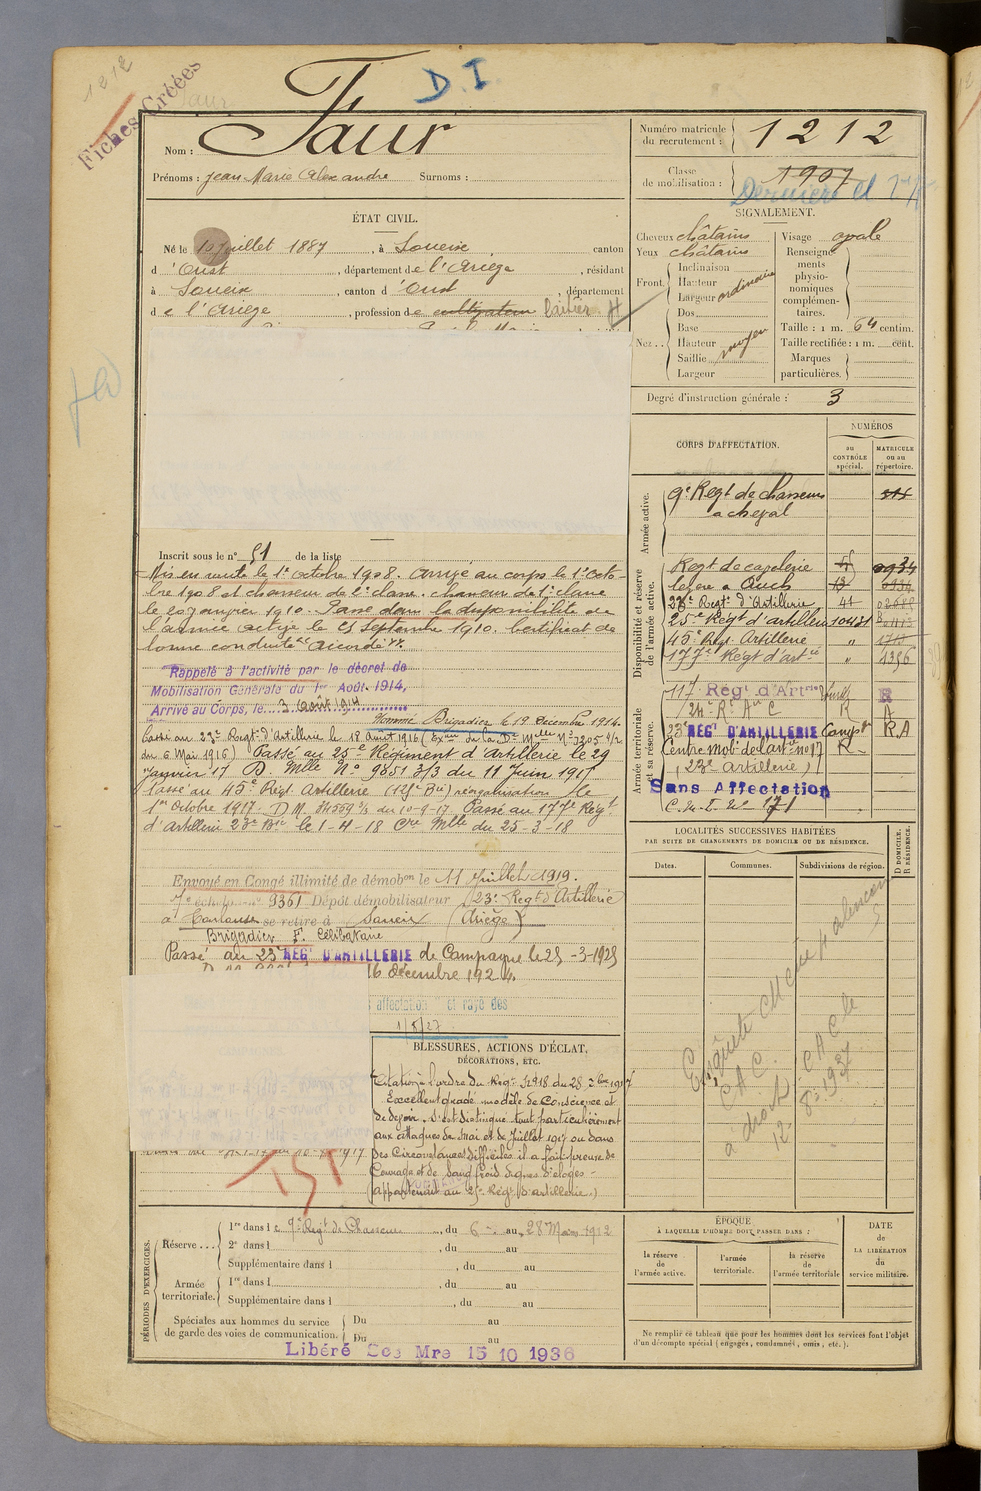 1212
Fiches Créées
D.I
Nom : Faur
Prénoms : Jean-Marie Alexandre Surnoms :
Numéro matricule du recrutement : 1212
Classe de mobilisation : 1907
Dernière et
ÉTAT CIVIL.
Né le 10 juillet 1887, à Soueix canton
d'Oust, département de l'Ariège, résidant
à Soueix, canton d'Oust, département
de l'Ariège, profession de cultivateur laitier
SIGNALEMENT.
Cheveux châtains
Yeux châtains
Front. Inclinaison
Hauteur
Largeur ordinaire
Nez.. Dos
Base
Hauteur moyen
Saillie
Largeur
Visage ovale
Renseignements physionomiques complémentaires.
Taille : 1 m. 64 centim.
Taille rectifiée : 1 m. cent.
Marques particulières.
Degré d'instruction générale : 3
Inscrit sous le n° 51 de la liste
Mis en route le 1er octobre 1908. Arrivé au corps le 1er octo-
bre 1908 et chasseur de 2e classe. Chasseur de 1e classe
le 20 janvier 1910. Passé dans la disponibilité de
l'armée active le 25 septembre 1910. Certificat de
bonne conduite accordé.
Rappelé à l'activité par le décret de
Mobilisation Générale du 1er Août 1914,
Arrivé au Corps, le 3 août 1914
Nommé Brigadier le 19 décembre 1914.
Passé au 23e Regt d'Artillerie le 18 Août 1916 (Exon de la Dn Mlle No 3205 4/2
du 6 Mai 1916) Passé au 25e Régiment d'Artillerie le 29
janvier 17 D. Mlle No 9851 3/3 du 11 Juin 1917
Passé au 45e Régt Artillerie (125e Bie) réorganisation le
1er Octobre 1917. DM. 34569 3/3 du 10-9-17. Passé au 177e Régt
d'artillerie 23e Bie le 1-4-18 Cre Mlle du 25-3-18
Envoyé en Congé illimité de démobon le 11 Juillet 1919.
7e échelon no 9361 Dépôt démobilisateur 23e Regt d'Artillerie
à Toulouse se retire à Soueix (Ariège)
Brigadier F. Célibataire
Passé au 23e REGt D'ARTILLERIE de Campagne le 25-3-1925
16 décembre 1924.
affectation et rayé des
1/5/27
BLESSURES, ACTIONS D'ÉCLAT,
DÉCORATIONS, ETC.
Citation à l'ordre du Regt No 218 du 28 7bre 1917
Excellent gradé modèle de conscience et
de devoir. S'est distingué tout particulièrement
aux attaques de Mai et de Juillet 1917 où dans
des Circonstances difficiles il a fait preuve de
Courage et de Sang froid dignes d'éloges -
(appartenant au 25e Régt d'artillerie.)
151
CORPS D'AFFECTATION.
NUMÉROS
au CONTRÔLE spécial.
MATRICULE ou au répertoire.
Armée active.
9e Regt de chasseurs
à cheval
Disponibilité et réserve de l'armée active.
Regt de cavalerie 0934
légère à Auch 12 0934
23e Regt d'Artillerie 41 02685
25e Regt d'artillerie 10481
45e Rég. Artillerie " 1717
177e Régt d'artie " 4356
Armée territoriale et sa réserve.
117 Régt d'Artrie lourde R
24e Rt Aie C R A
23e REGt D'ARTILLERIE Campne R.A
Centre mobr de l'artie no 17 R
(23e Artillerie)
Sans Affectation
171
LOCALITÉS SUCCESSIVES HABITÉES
PAR SUITE DE CHANGEMENTS DE DOMICILE OU DE RÉSIDENCE.
Dates. Communes. Subdivisions de région.
D DOMICILE. R RÉSIDENCE.
Enquête
CAC
à droit
CAC le
8-1937
PÉRIODES D'EXERCICES.
Réserve... 1re dans le 9e Regt de Chasseurs, du 6 au 28 Mars 1912
2e dans l, du au
Supplémentaire dans l, du au
Armée territoriale. 1re dans l, du au
Supplémentaire dans l, du au
Spéciales aux hommes du service de garde des voies de communication. Du au
Du au
Libéré Ses Mre 15 10 1936
ÉPOQUE
À LAQUELLE L'HOMME DOIT PASSER DANS :
la réserve de l'armée active.
l'armée territoriale.
la réserve de l'armée territoriale
DATE DE LA LIBÉRATION du service militaire.
Ne remplir ce tableau que pour les hommes dont les services font l'objet
d'un décompte spécial (engagés, condamnés, omis, etc.).